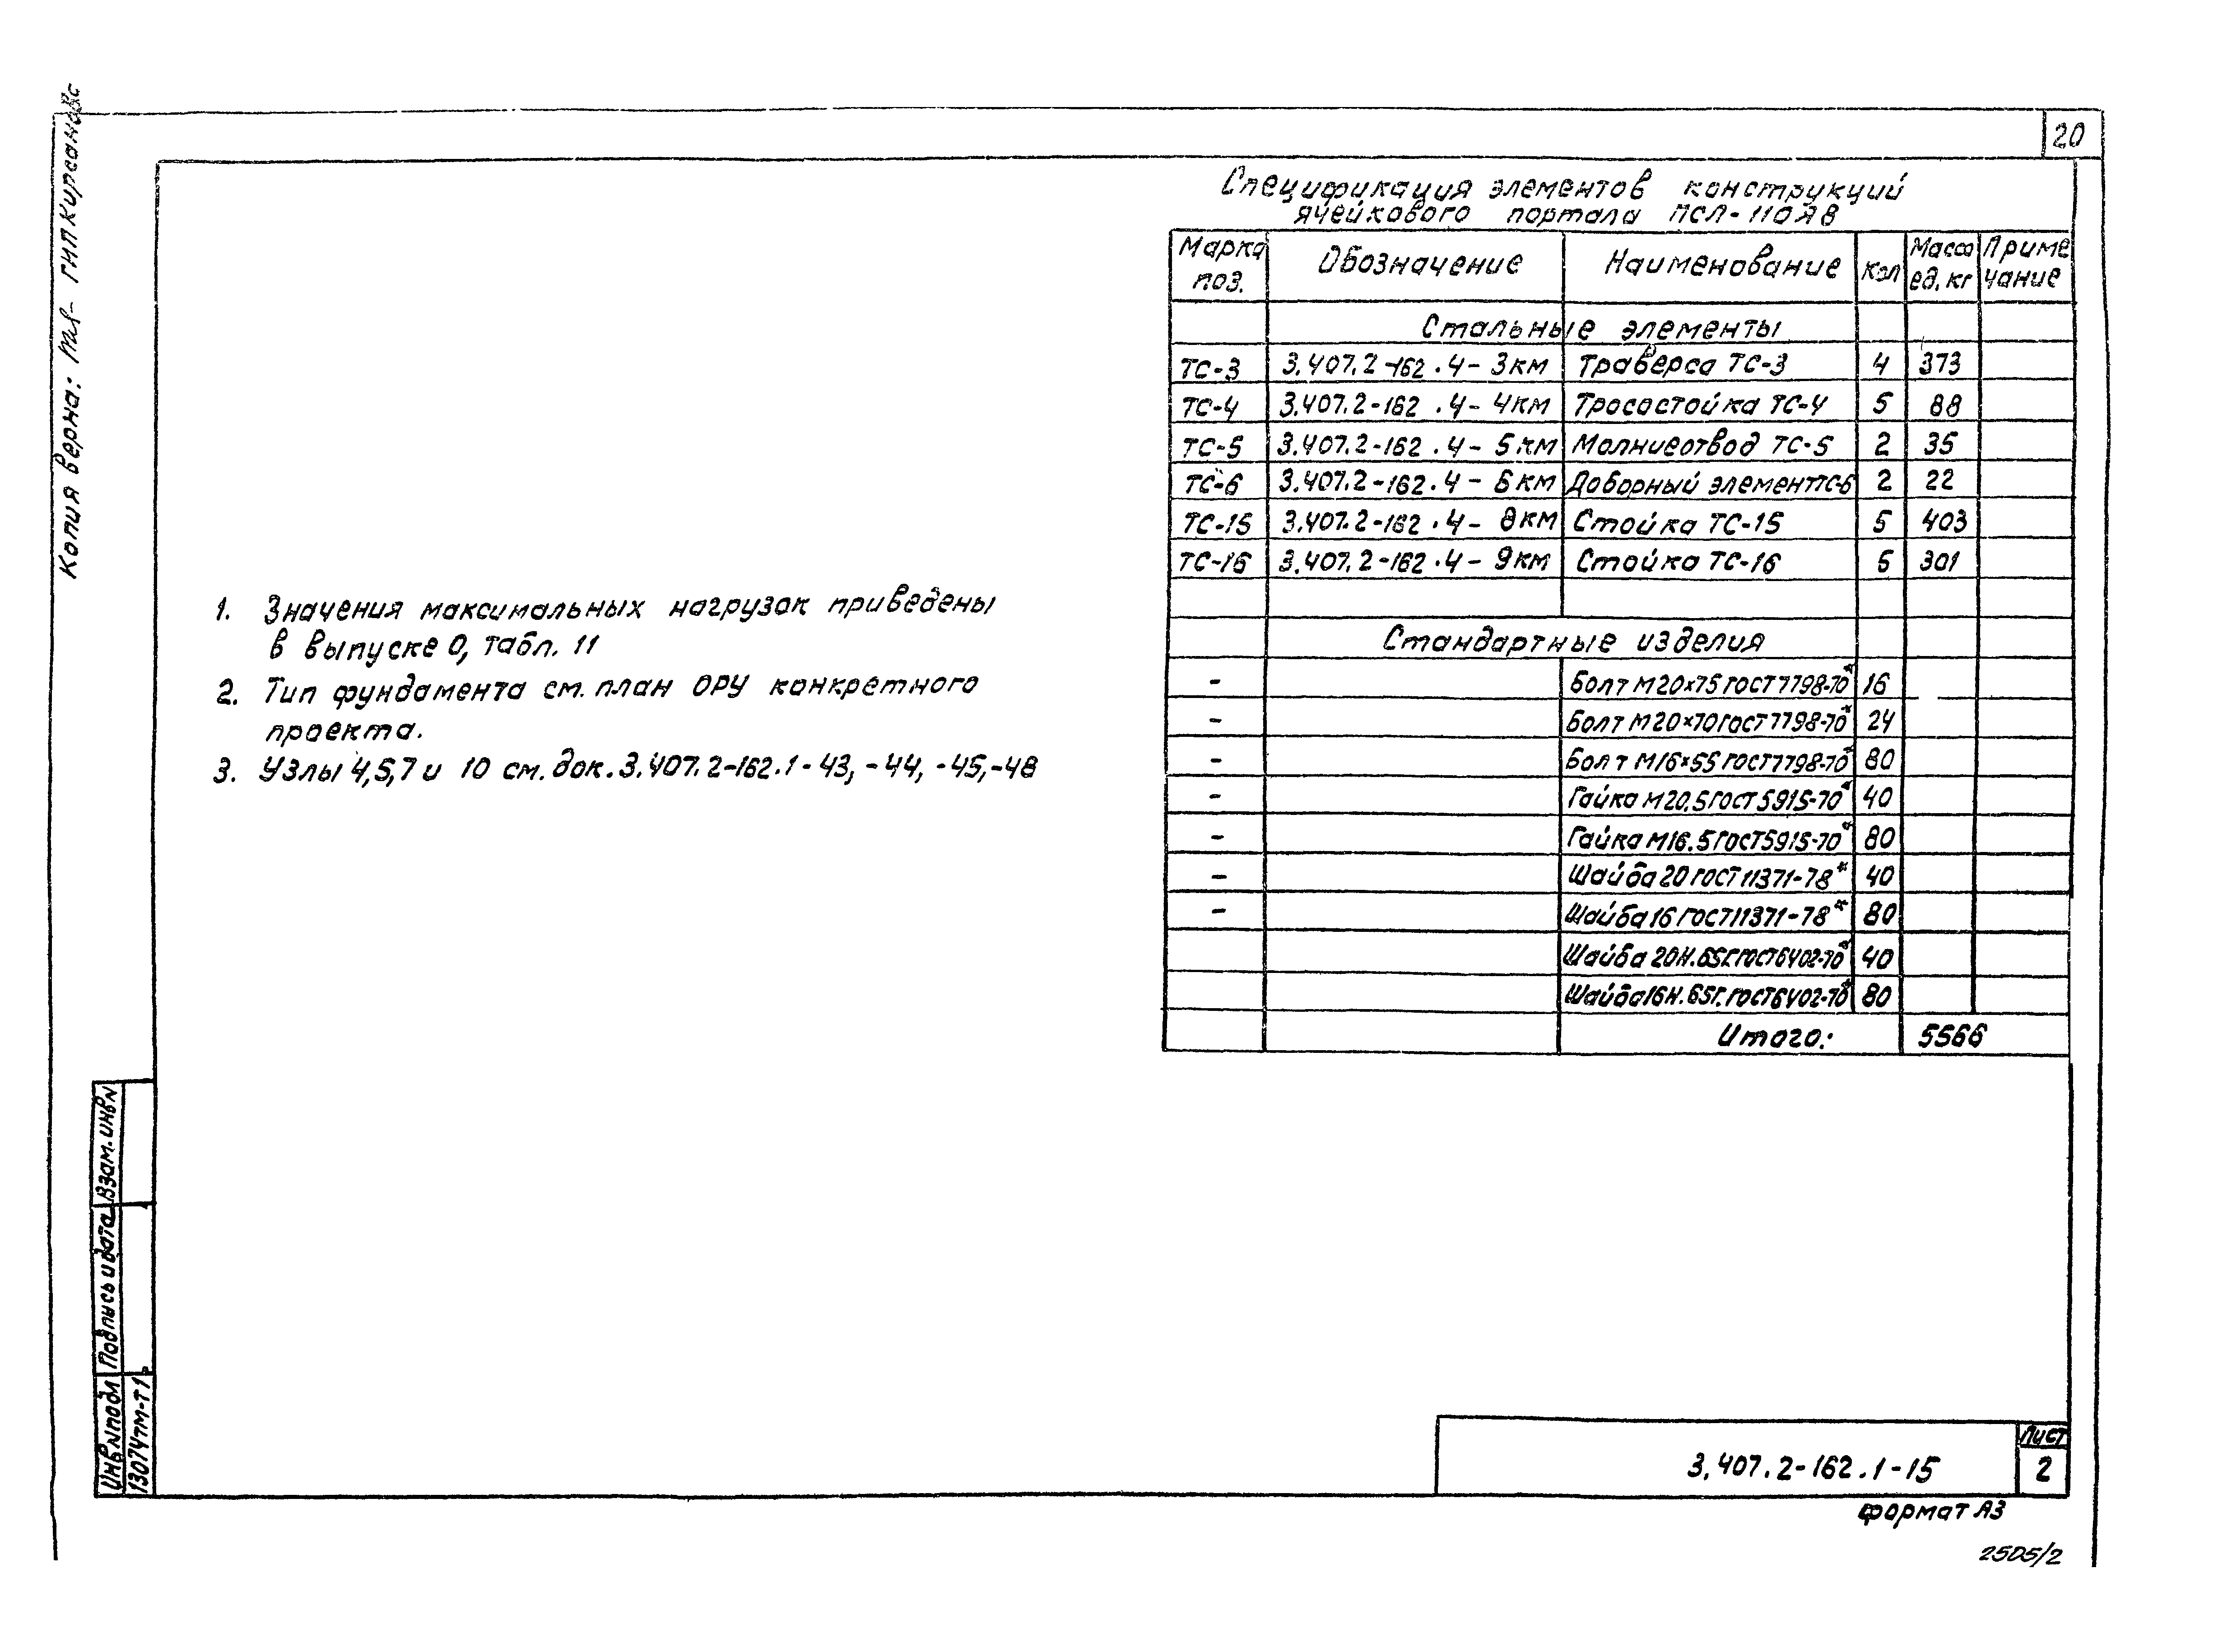 20
Копия верна: ГИП Кирсанова
Спецификация элементов конструкций
ячейкового портала ПСЛ-110Я8
Марка поз. | Обозначение | Наименование | Кол | Масса ед. кг | Примечание
Стальные элементы
ТС-3 | 3.407.2-162.4-3км | Траверса ТС-3 | 4 | 373
ТС-4 | 3.407.2-162.4-4км | Тросостойка ТС-4 | 5 | 88
ТС-5 | 3.407.2-162.4-5км | Молниеотвод ТС-5 | 2 | 35
ТС-6 | 3.407.2-162.4-6км | Доборный элемент ТС-6 | 2 | 22
ТС-15 | 3.407.2-162.4-8км | Стойка ТС-15 | 5 | 403
ТС-16 | 3.407.2-162.4-9км | Стойка ТС-16 | 5 | 301
Стандартные изделия
- | Болт М20×75 ГОСТ 7798-70* | 16
- | Болт М20×70 ГОСТ 7798-70* | 24
- | Болт М16×55 ГОСТ 7798-70* | 80
- | Гайка М20.5 ГОСТ 5915-70* | 40
- | Гайка М16.5 ГОСТ 5915-70* | 80
- | Шайба 20 ГОСТ 11371-78* | 40
- | Шайба 16 ГОСТ 11371-78* | 80
Шайба 20Н.65Г. ГОСТ 6402-70* | 40
Шайба 16Н.65Г. ГОСТ 6402-70* | 80
Итого: | 5566
1. Значения максимальных нагрузок приведены
в выпуске 0, табл. 11
2. Тип фундамента см. план ОРУ конкретного
проекта.
3. Узлы 4,5,7 и 10 см. док. 3.407.2-162.1-43, -44, -45, -48
Взам. инв N
Подпись и дата
Инв N подл
13074тм-т1
3.407.2-162.1-15
Лист
2
формат А3
2505/2